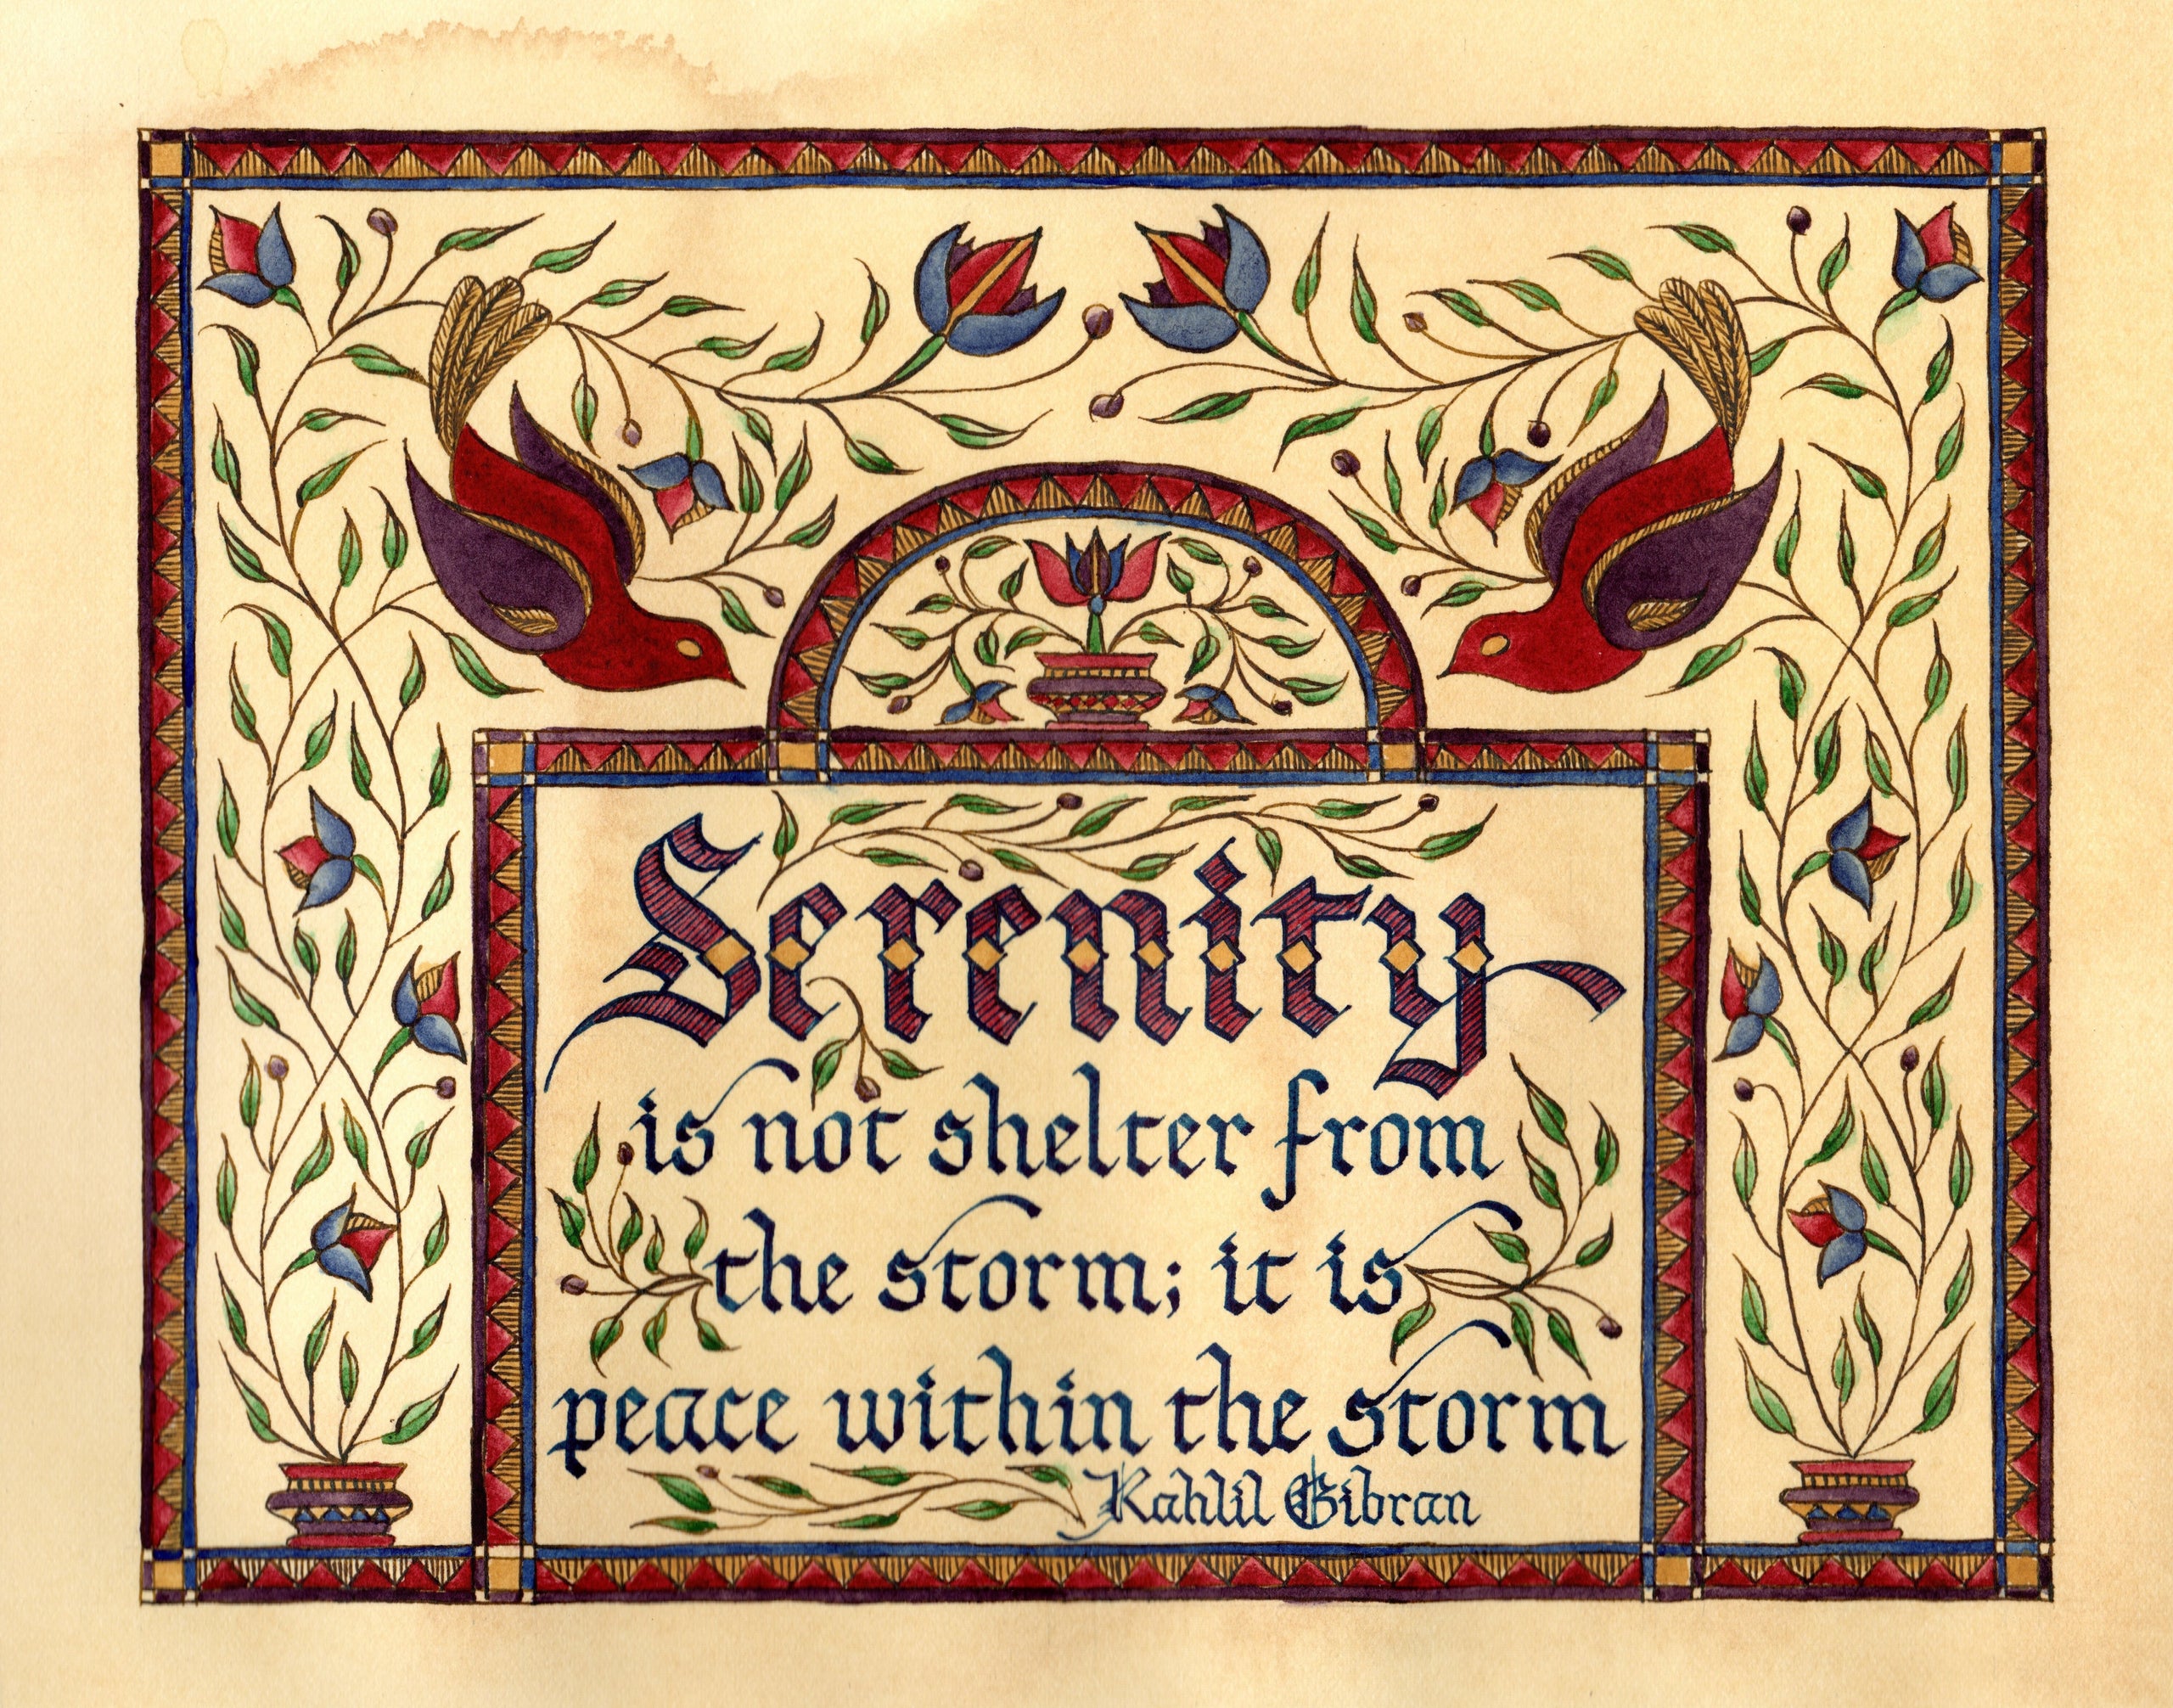 Serenity
is not shelter from
the storm; it is
peace within the storm
Kahlil Gibran